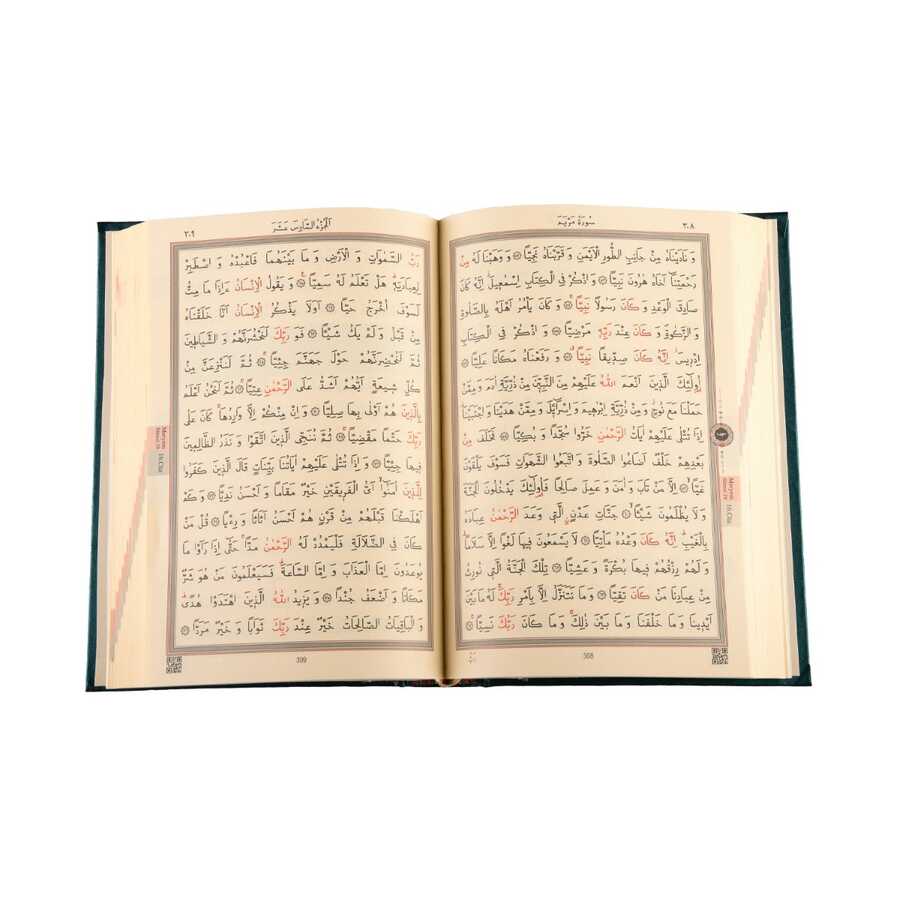 ٣٠٨
سُورَةُ مَرْيَمَ
وَ نَادَيْنَاهُ مِنْ جَانِبِ الطُّورِ الْاَيْمَنِ وَ قَرَّبْنَاهُ نَجِيًّا ﴿٥٢﴾ وَ وَهَبْنَا لَهُ مِنْ
رَحْمَتِنَٓا اَخَاهُ هٰرُونَ نَبِيًّا ﴿٥٣﴾ وَ اذْكُرْ فِي الْكِتَابِ اِسْمٰعِيلَ اِنَّهُ كَانَ
صَادِقَ الْوَعْدِ وَ كَانَ رَسُولًا نَبِيًّا ﴿٥٤﴾ وَ كَانَ يَاْمُرُ اَهْلَهُ بِالصَّلٰوةِ
وَ الزَّكٰوةِ وَ كَانَ عِنْدَ رَبِّهِ مَرْضِيًّا ﴿٥٥﴾ وَ اذْكُرْ فِي الْكِتَابِ
اِدْرِيسَ اِنَّهُ كَانَ صِدِّيقًا نَبِيًّا ﴿٥٦﴾ وَ رَفَعْنَاهُ مَكَانًا عَلِيًّا ﴿٥٧﴾
اُولٰٓئِكَ الَّذِينَ اَنْعَمَ اللّٰهُ عَلَيْهِمْ مِنَ النَّبِيِّنَ مِنْ ذُرِّيَّةِ اٰدَمَ وَ مِمَّنْ
حَمَلْنَا مَعَ نُوحٍ وَ مِنْ ذُرِّيَّةِ اِبْرٰهِيمَ وَ اِسْرَٓائِلَ وَ مِمَّنْ هَدَيْنَا وَ اجْتَبَيْنَا
اِذَا تُتْلٰى عَلَيْهِمْ اٰيَاتُ الرَّحْمٰنِ خَرُّوا سُجَّدًا وَ بُكِيًّا ﴿٥٨﴾ فَخَلَفَ مِنْ
بَعْدِهِمْ خَلْفٌ اَضَاعُوا الصَّلٰوةَ وَ اتَّبَعُوا الشَّهَوَاتِ فَسَوْفَ يَلْقَوْنَ
غَيًّا ﴿٥٩﴾ اِلَّا مَنْ تَابَ وَ اٰمَنَ وَ عَمِلَ صَالِحًا فَاُولٰٓئِكَ يَدْخُلُونَ الْجَنَّةَ
وَ لَا يُظْلَمُونَ شَيْئًا ﴿٦٠﴾ جَنَّاتِ عَدْنٍ الَّتِي وَعَدَ الرَّحْمٰنُ عِبَادَهُ
بِالْغَيْبِ اِنَّهُ كَانَ وَعْدُهُ مَاْتِيًّا ﴿٦١﴾ لَا يَسْمَعُونَ فِيهَا لَغْوًا اِلَّا سَلَامًا
وَ لَهُمْ رِزْقُهُمْ فِيهَا بُكْرَةً وَ عَشِيًّا ﴿٦٢﴾ تِلْكَ الْجَنَّةُ الَّتِي نُورِثُ
مِنْ عِبَادِنَا مَنْ كَانَ تَقِيًّا ﴿٦٣﴾ وَ مَا نَتَنَزَّلُ اِلَّا بِاَمْرِ رَبِّكَ لَهُ مَا بَيْنَ
اَيْدِينَا وَ مَا خَلْفَنَا وَ مَا بَيْنَ ذٰلِكَ وَ مَا كَانَ رَبُّكَ نَسِيًّا ﴿٦٤﴾
308
Meryem
Sûresi 19
16.Cüz
٣٠٩
اَلْجُزْءُ السَّادِسَ عَشَرَ
رَبُّ السَّمٰوَاتِ وَ الْاَرْضِ وَ مَا بَيْنَهُمَا فَاعْبُدْهُ وَ اصْطَبِرْ
لِعِبَادَتِهِ هَلْ تَعْلَمُ لَهُ سَمِيًّا ﴿٦٥﴾ وَ يَقُولُ الْاِنْسَانُ ءَاِذَا مَا مِتُّ
لَسَوْفَ اُخْرَجُ حَيًّا ﴿٦٦﴾ اَوَلَا يَذْكُرُ الْاِنْسَانُ اَنَّا خَلَقْنَاهُ
مِنْ قَبْلُ وَ لَمْ يَكُ شَيْئًا ﴿٦٧﴾ فَوَ رَبِّكَ لَنَحْشُرَنَّهُمْ وَ الشَّيَاطِينَ
ثُمَّ لَنُحْضِرَنَّهُمْ حَوْلَ جَهَنَّمَ جِثِيًّا ﴿٦٨﴾ ثُمَّ لَنَنْزِعَنَّ مِنْ
كُلِّ شِيعَةٍ اَيُّهُمْ اَشَدُّ عَلَى الرَّحْمٰنِ عِتِيًّا ﴿٦٩﴾ ثُمَّ لَنَحْنُ اَعْلَمُ
بِالَّذِينَ هُمْ اَوْلٰى بِهَا صِلِيًّا ﴿٧٠﴾ وَ اِنْ مِنْكُمْ اِلَّا وَارِدُهَا كَانَ عَلٰى
رَبِّكَ حَتْمًا مَقْضِيًّا ﴿٧١﴾ ثُمَّ نُنَجِّي الَّذِينَ اتَّقَوْا وَ نَذَرُ الظَّالِمِينَ
فِيهَا جِثِيًّا ﴿٧٢﴾ وَ اِذَا تُتْلٰى عَلَيْهِمْ اٰيَاتُنَا بَيِّنَاتٍ قَالَ الَّذِينَ كَفَرُوا
لِلَّذِينَ اٰمَنُوا اَيُّ الْفَرِيقَيْنِ خَيْرٌ مَقَامًا وَ اَحْسَنُ نَدِيًّا ﴿٧٣﴾ وَ كَمْ
اَهْلَكْنَا قَبْلَهُمْ مِنْ قَرْنٍ هُمْ اَحْسَنُ اَثَاثًا وَ رِءْيًا ﴿٧٤﴾ قُلْ مَنْ
كَانَ فِي الضَّلَالَةِ فَلْيَمْدُدْ لَهُ الرَّحْمٰنُ مَدًّا حَتّٰى اِذَا رَاَوْا مَا
يُوعَدُونَ اِمَّا الْعَذَابَ وَ اِمَّا السَّاعَةَ فَسَيَعْلَمُونَ مَنْ هُوَ شَرٌّ
مَكَانًا وَ اَضْعَفُ جُنْدًا ﴿٧٥﴾ وَ يَزِيدُ اللّٰهُ الَّذِينَ اهْتَدَوْا هُدًى
وَ الْبَاقِيَاتُ الصَّالِحَاتُ خَيْرٌ عِنْدَ رَبِّكَ ثَوَابًا وَ خَيْرٌ مَرَدًّا ﴿٧٦﴾
309
Meryem
Sûresi 19
16.Cüz